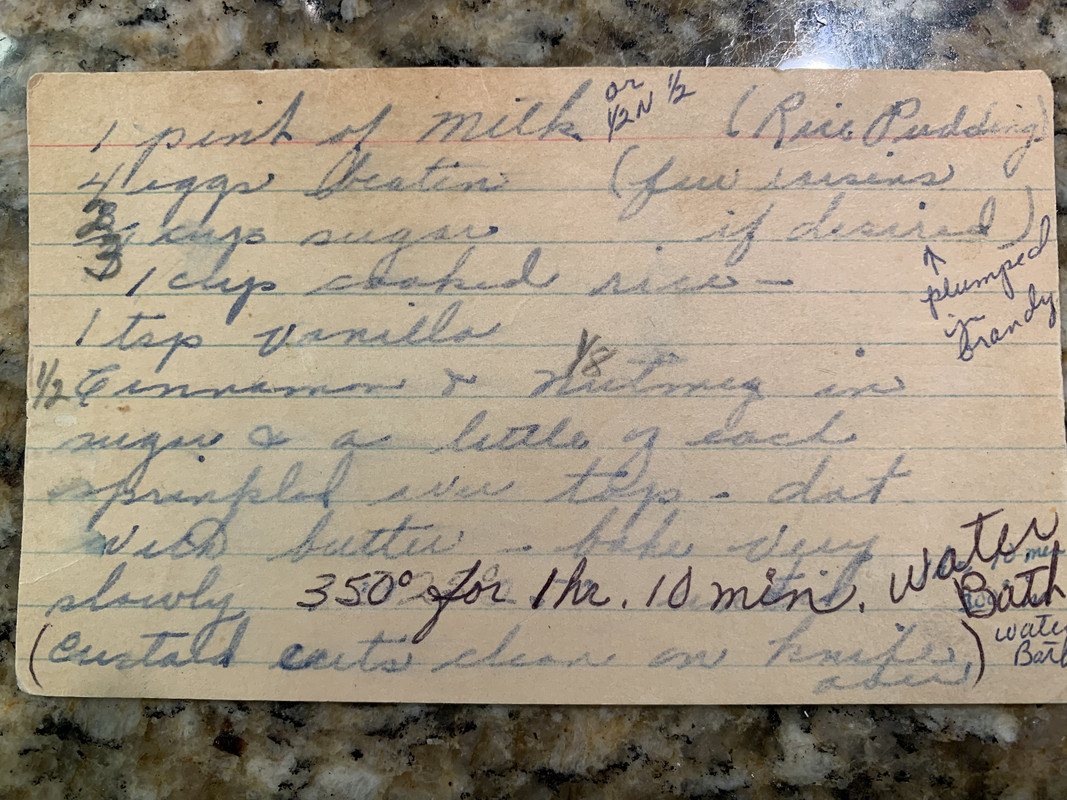 1 pint of Milk or ½ N ½ (Rice Pudding)
4 eggs beaten (few raisins
2/3 cup sugar if desired)
↑ plumped
in
brandy
1 cup cooked rice -
1 tsp vanilla
½ Cinnamon & 1/8 Nutmeg in
sugar & a little of each
sprinkled over top - dot
with butter - bake very
slowly 350° for 1 hr. 10 min. Water
Bath
water
(Custard cuts clean on knife)